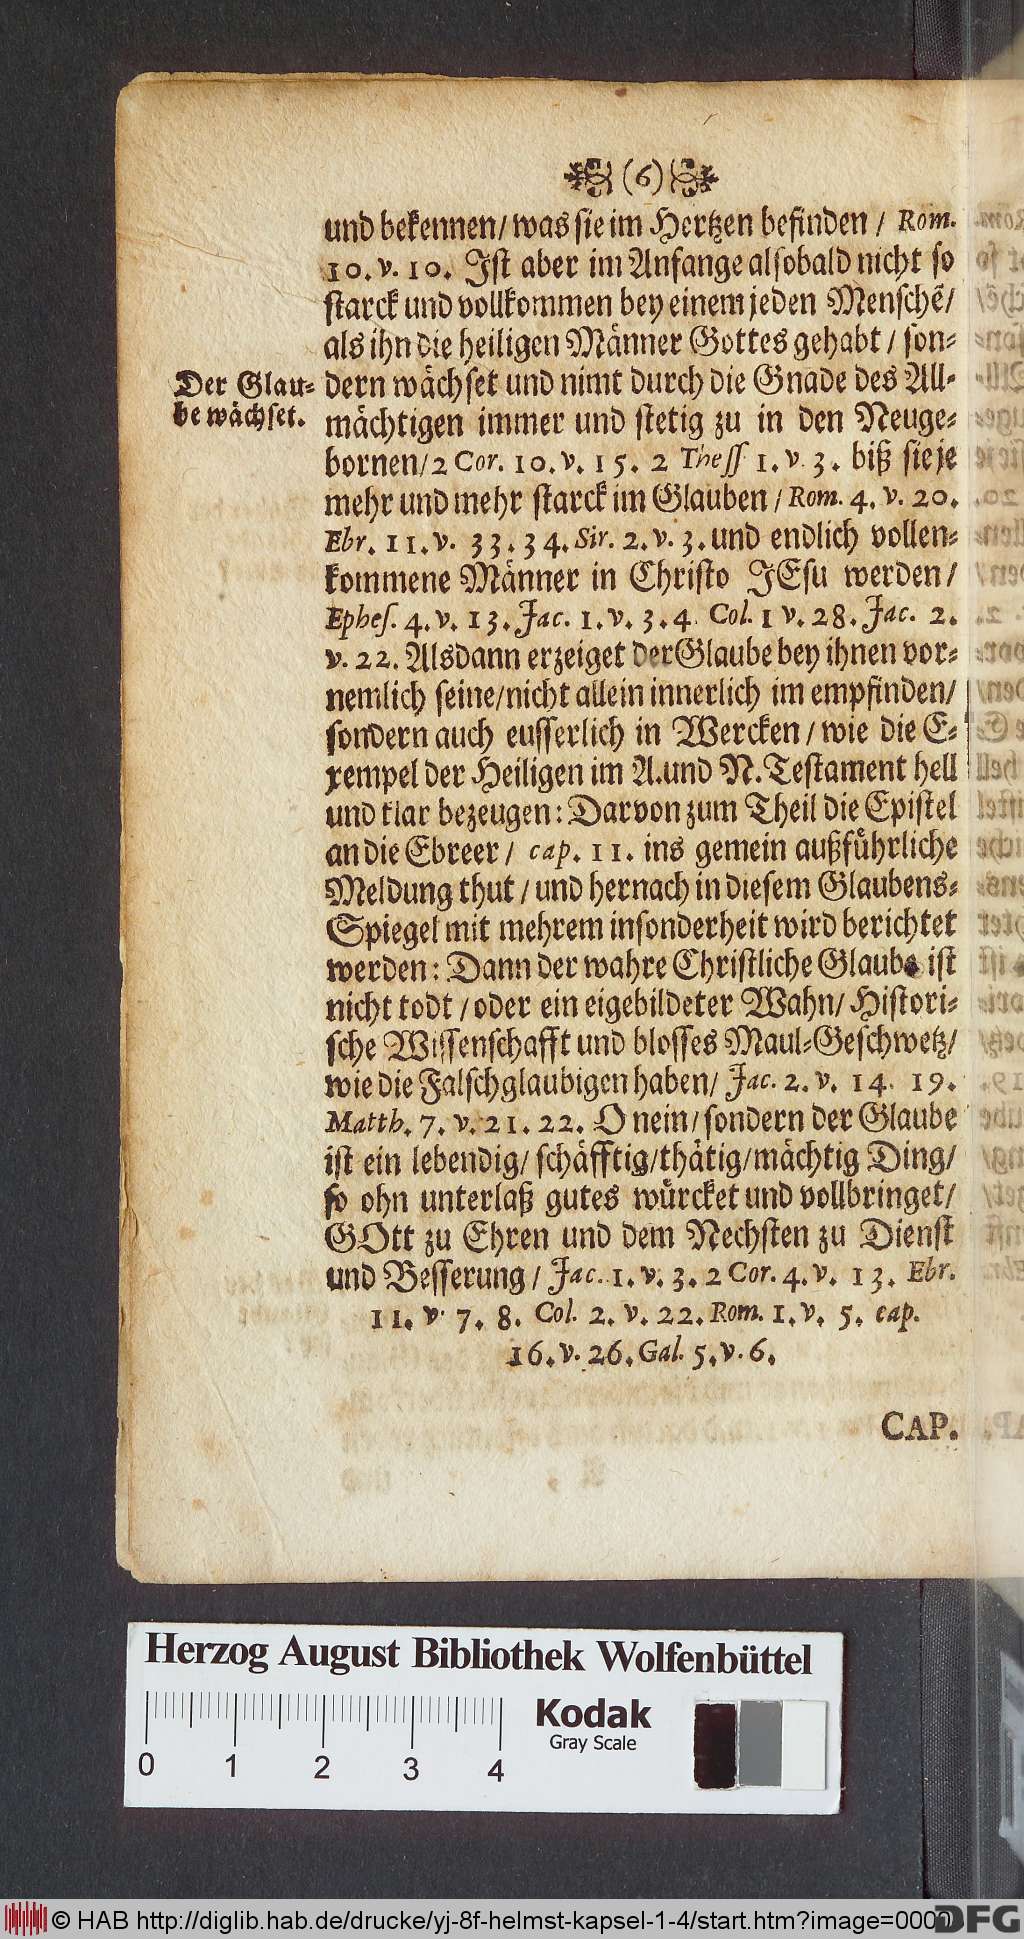 (6)
und bekennen/ was sie im Hertzen befinden / Rom.
10. v. 10. Ist aber im Anfange alsobald nicht so
starck und vollkommen bey einem jeden Menschẽ/
als ihn die heiligen Männer Gottes gehabt / son-
Der Glau-
be wächset.
dern wächset und nimt durch die Gnade des All-
mächtigen immer und stetig zu in den Neuge-
bornen/ 2 Cor. 10. v. 15. 2 Thess 1. v. 3. biß sie je
mehr und mehr starck im Glauben / Rom. 4. v. 20.
Ebr. 11. v. 33. 34. Sir. 2. v. 3. und endlich vollen-
kommene Männer in Christo JEsu werden/
Ephes. 4. v. 13. Jac. 1. v. 3. 4. Col. 1 v. 28. Jac. 2.
v. 22. Alsdann erzeiget der Glaube bey ihnen vor-
nemlich seine/ nicht allein innerlich im empfinden/
sondern auch eusserlich in Wercken / wie die E-
xempel der Heiligen im A. und N. Testament hell
und klar bezeugen: Darvon zum Theil die Epistel
an die Ebreer / cap. 11. ins gemein außführliche
Meldung thut / und hernach in diesem Glaubens-
Spiegel mit mehrem insonderheit wird berichtet
werden: Dann der wahre Christliche Glaube ist
nicht todt / oder ein eigebildeter Wahn/ Histori-
sche Wissenschafft und blosses Maul-Geschwetz/
wie die Falschglaubigen haben/ Jac. 2. v. 14. 19.
Matth. 7. v. 21. 22. O nein/ sondern der Glaube
ist ein lebendig/ schäfftig/ thätig/ mächtig Ding/
so ohn unterlaß gutes würcket und vollbringet/
GOtt zu Ehren und dem Nechsten zu Dienst
und Besserung / Jac. 1. v. 3. 2 Cor. 4. v. 13. Ebr.
11. v. 7. 8. Col. 2. v. 22. Rom. 1. v. 5. cap.
16. v. 26. Gal. 5. v. 6.
CAP.
Herzog August Bibliothek Wolfenbüttel
Kodak
Gray Scale
0 1 2 3 4
© HAB http://diglib.hab.de/drucke/yj-8f-helmst-kapsel-1-4/start.htm?image=0000
DFG